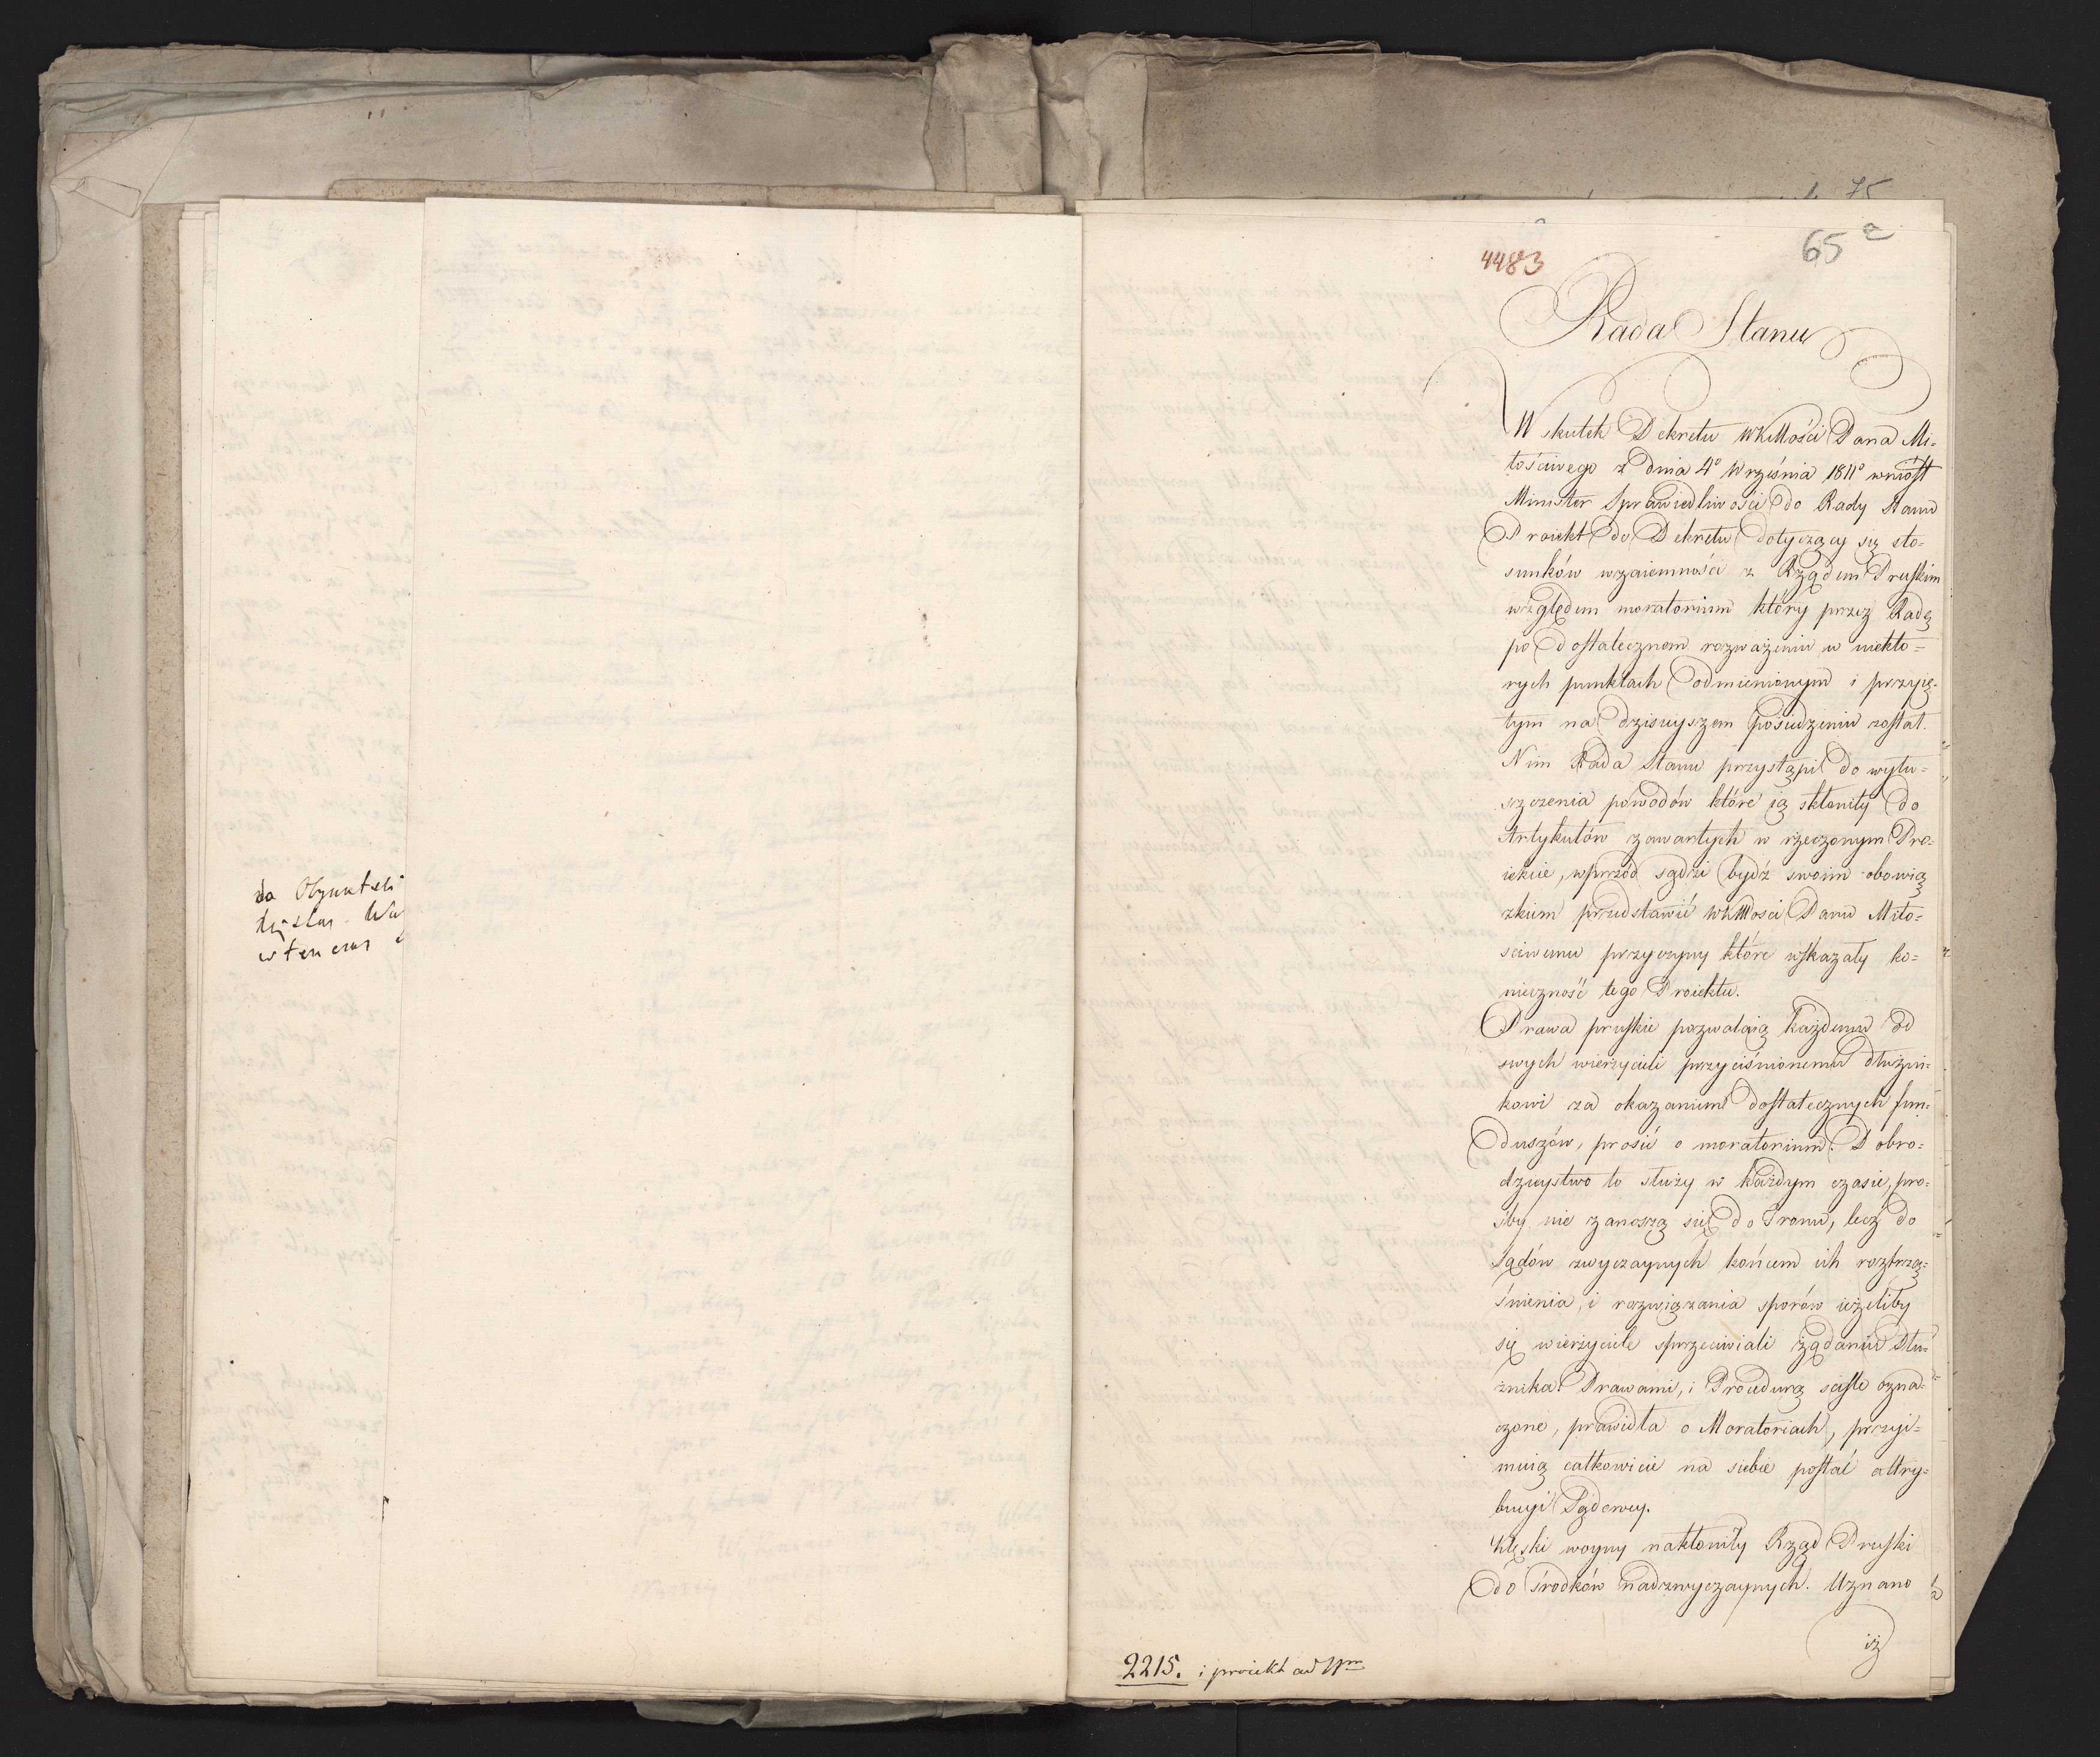 75
65 a
4483
Rada Stanu
W skutek Dekretu WKMości Pana Mi=
łościwego z dnia 4° Września 1811° wniósł
Minister Sprawiedliwości do Rady Stanu
Proiekt do Dekretu dotyczący się sto=
sunków wzaiemności z Rządem Pruskim
względem moratorium który przez Radę
po dostatecznem rozważeniu w niektó=
rych punktach odmienionym i przyię=
tym na dzisieyszem posiedzeniu został.
Nim Rada Stanu przystąpi do wyłu=
szczenia powodów które ią skłoniły do
Artykułów zawartych w rzeczonym Pro=
iekcie, wprzód sądzi bydź swoim obowią
zkiem przedstawić WKMości Panu Miło=
sciwemu przyczyny które wskazały ko=
nieczność tego Proiektu.
Prawa pruskie pozwalaią każdemu od
swych wierzycieli przyciśnionemu dłużni=
kowi za okazaniem dostatecznych fun=
duszów, prosić o moratorium. Dobro=
dzieystwo to służy w każdym czasie, pro=
śby nie zanoszą się do Tronu, lecz do
Sądów zwyczaynych końcem ich roztrzą=
śnienia, i rozwiązania sporów ieżeliby
się wierzyciele sprzeciwiali żądaniu Dłu=
żnika. Prawami, i Procedurą sciśle ozna=
czone, prawidła o Moratoriach, przyi=
muią całkowicie na siebie postać attry=
bucyi Sądowey.
Klęski woyny nakłoniły Rząd Pruski
do środków nadzwyczaynych. Uznano
iż
da Obywateli
wten czas
2215. i proiekt ad